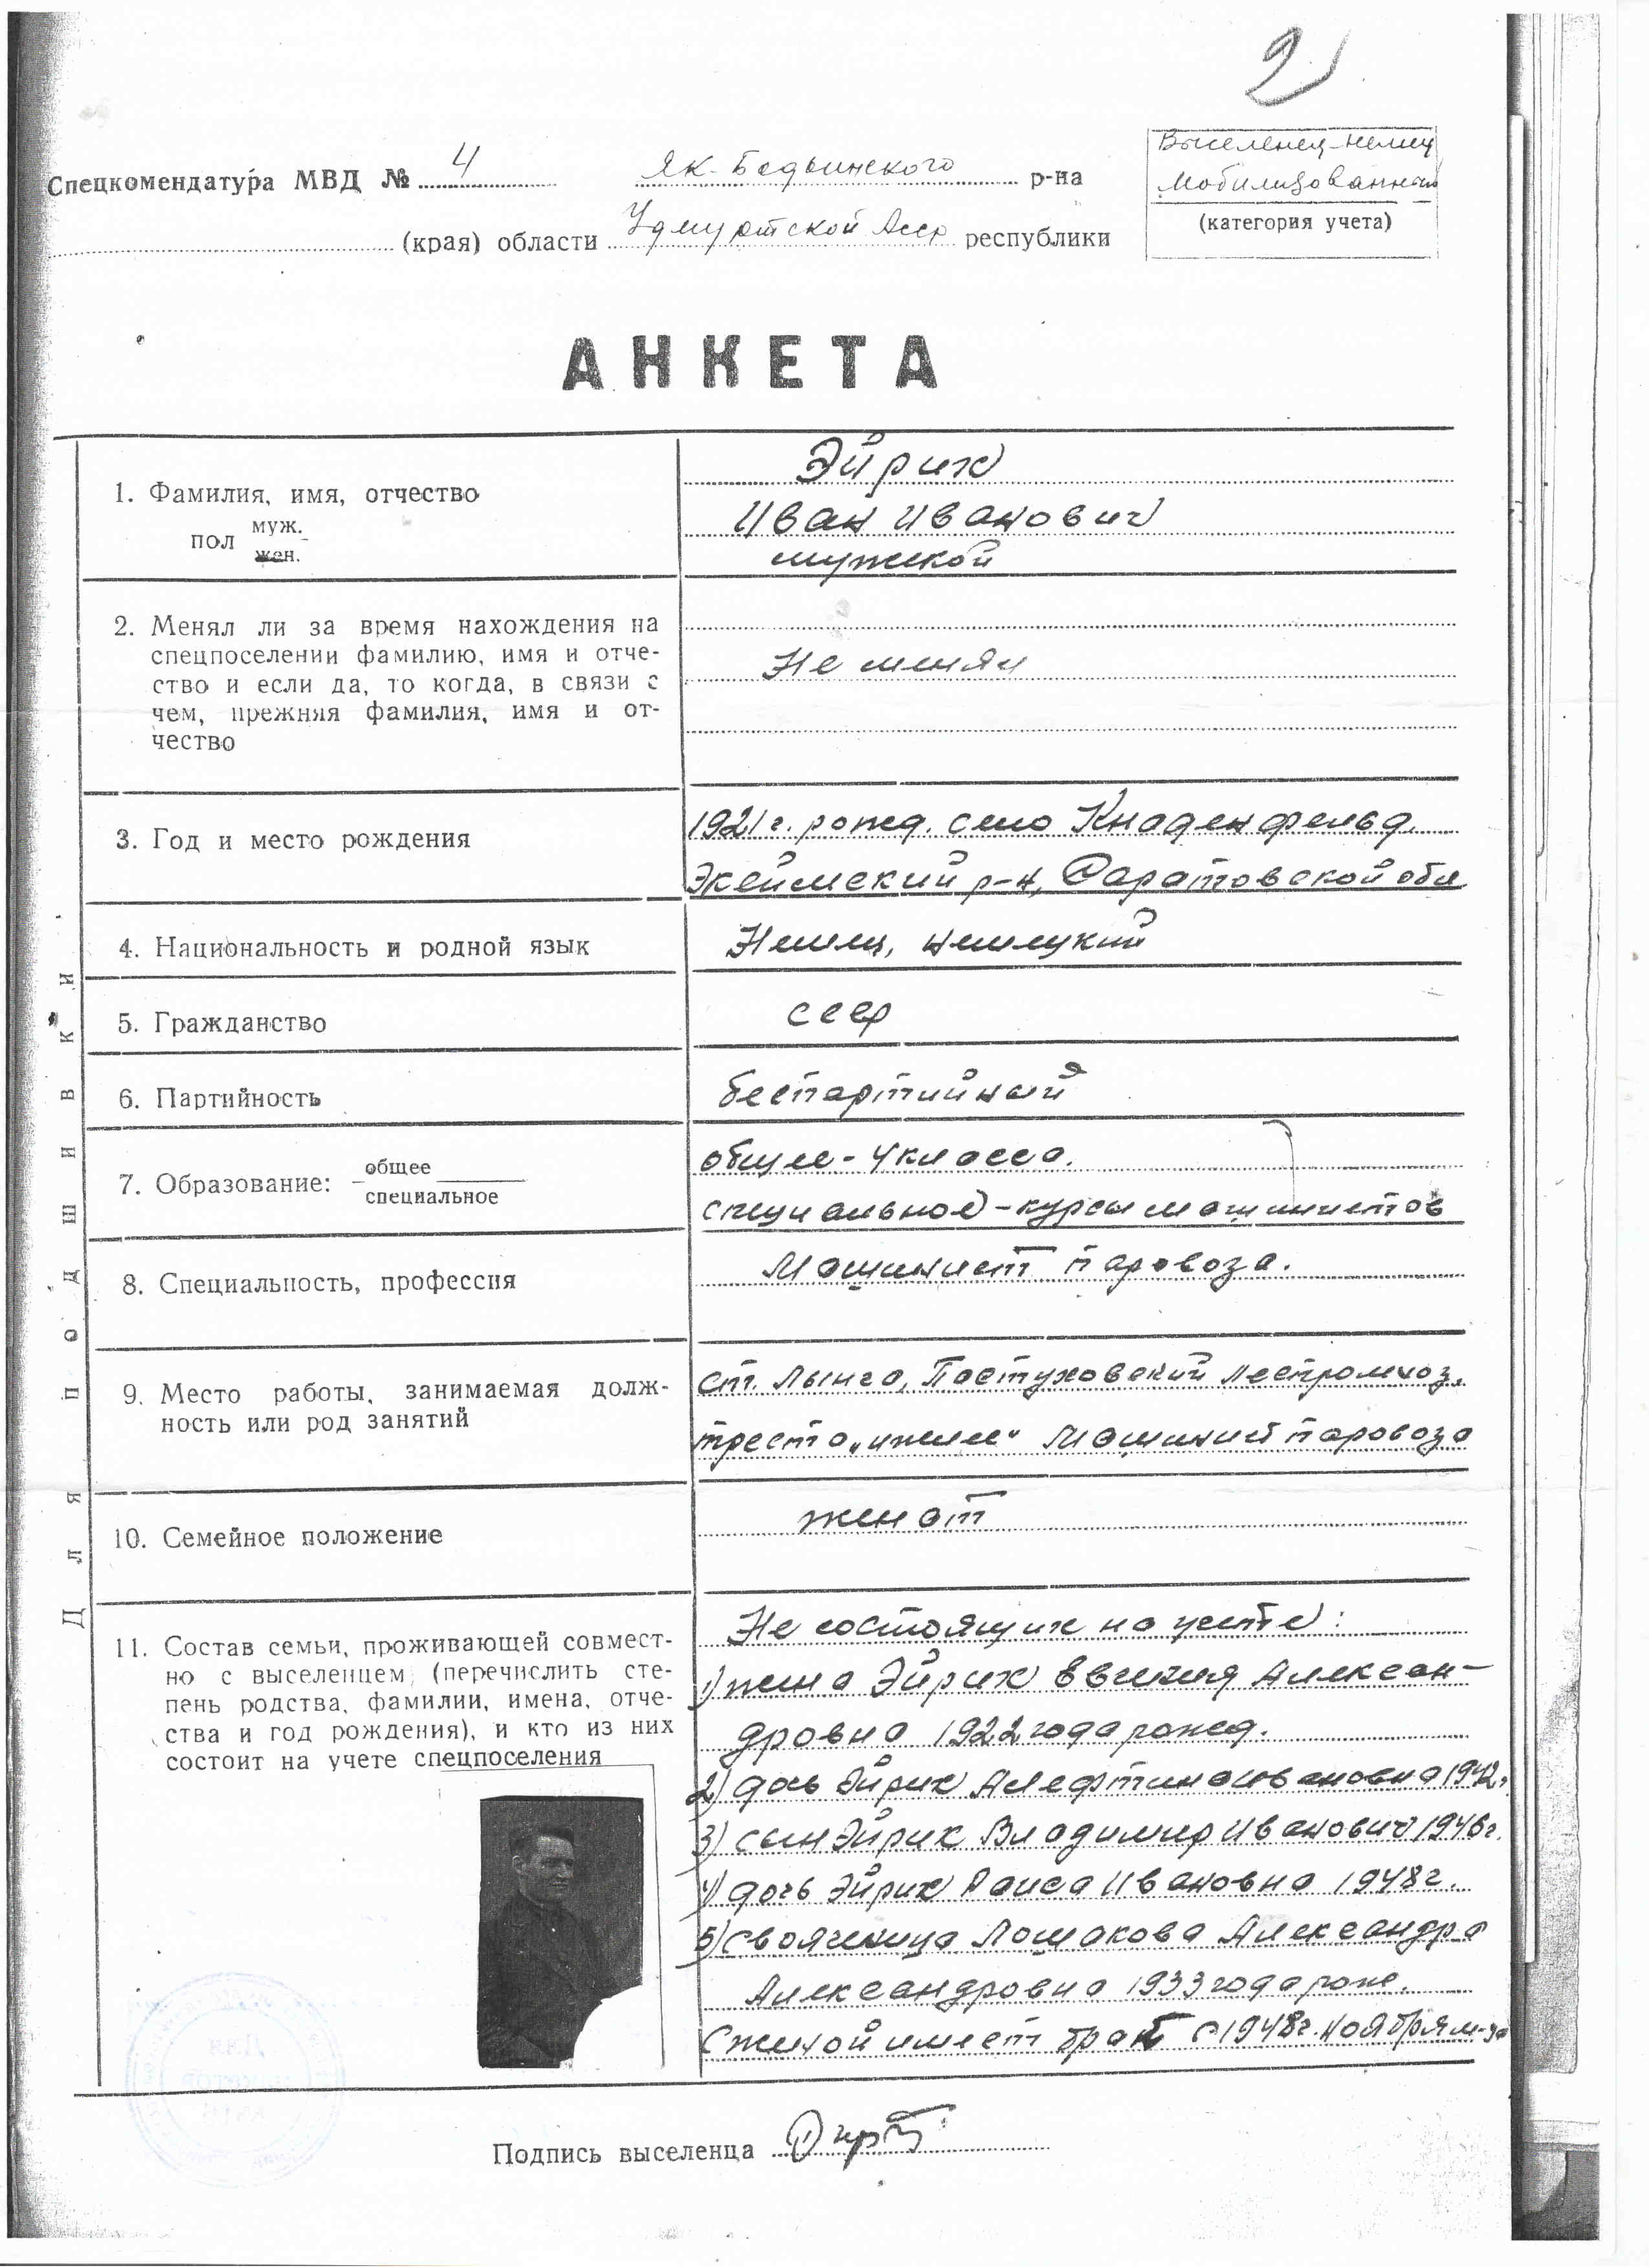 2
Спецкомендатура МВД № 4 Як-Бодьинского р-на
(края) области Удмуртской Асср республики
Выселенец-немец
мобилизованный
(категория учета)
АНКЕТА
1. Фамилия, имя, отчество
пол муж.
жен.
Эйрих
Иван Иванович
мужской
2. Менял ли за время нахождения на
спецпоселении фамилию, имя и отче-
ство и если да, то когда, в связи с
чем, прежняя фамилия, имя и от-
чество
Не менял
3. Год и место рождения
1921 г. рожд. село Кнаденфельд.
Экеймский р-н, Саратовской обл
4. Национальность и родной язык
Немец, немецкий
5. Гражданство
ссср
6. Партийность
беспартийный
7. Образование: общее
специальное
общее - 4 класса.
специальное - курсы машинистов
8. Специальность, профессия
Машинист паровоза.
9. Место работы, занимаемая долж-
ность или род занятий
ст. Лынга, Пастуховский леспромхоз,
треста „ижлес“ Машинист паровоза
10. Семейное положение
женат
11. Состав семьи, проживающей совмест-
но с выселенцем (перечислить сте-
пень родства, фамилии, имена, отче-
ства и год рождения), и кто из них
состоит на учете спецпоселения
Не состоящих на учете:
1) жена Эйрих Евгения Алексан-
дровна 1922 года рожд.
2) дочь Эйрих Алефтина Ивановна 1942г.
3) сын Эйрих Владимир Иванович 1946г.
4) дочь Эйрих Раиса Ивановна 1948г.
5) свояченица Лошакова Александра
Александровна 1933 года рожд.
С женой имеет брак с 1948г. ноября м-ца
Подпись выселенца
Для подшивки